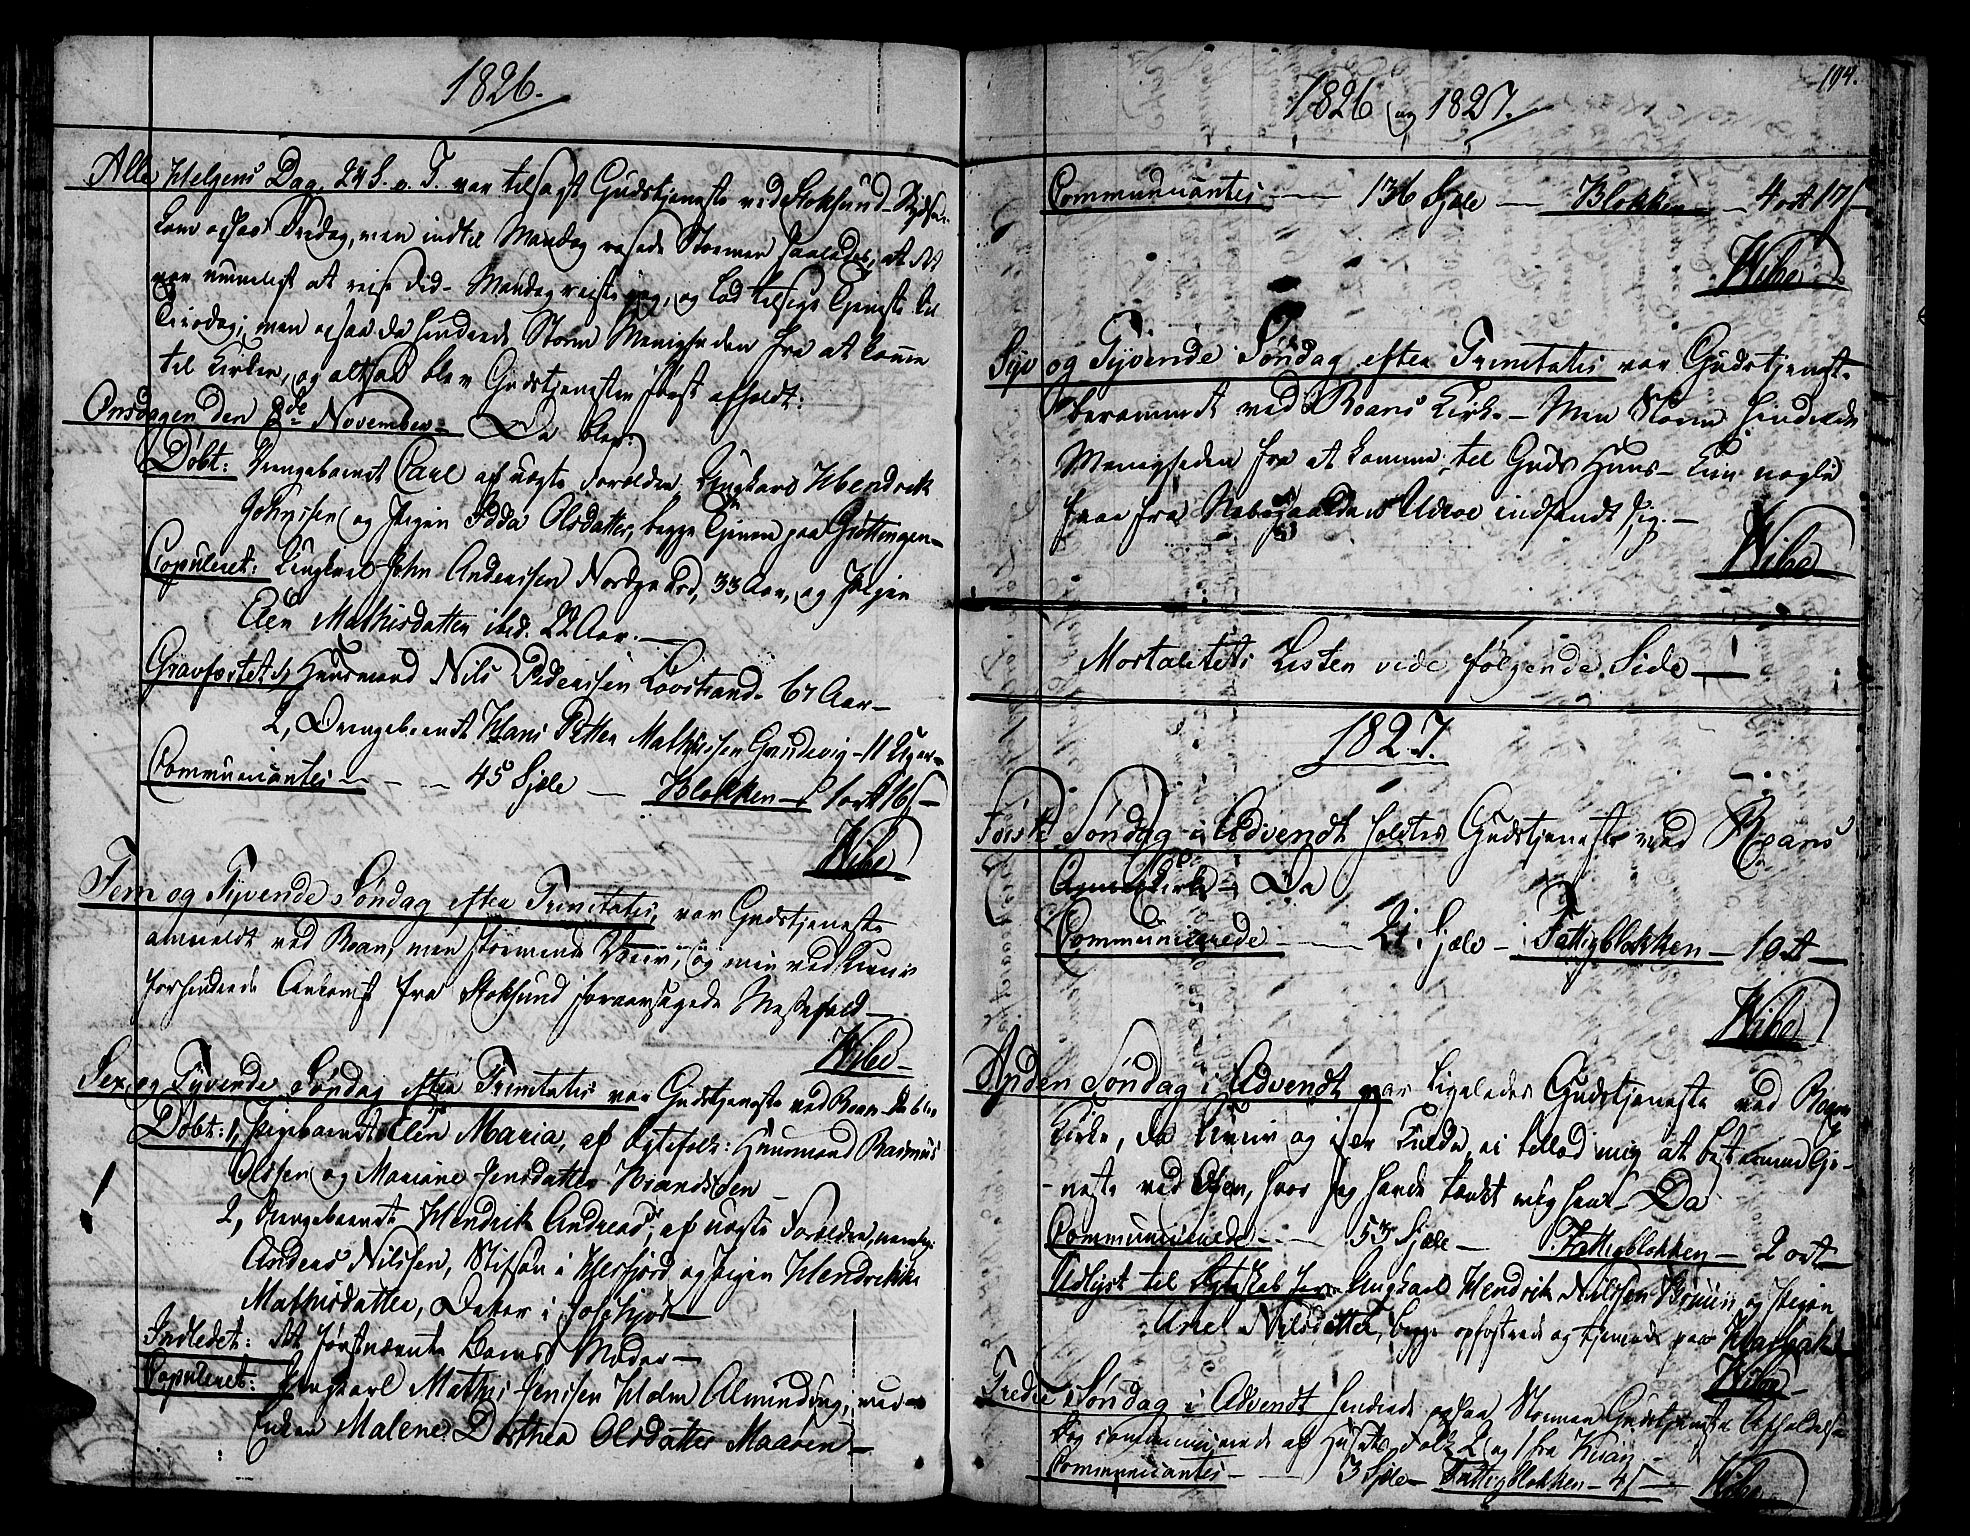 1826.
Alle Helgens Dag, 24 S. e. T. var tilsagt Gudstjeneste ved Stoksund
kom ogsaa Tredag, men indtil Mandag rasede Stormen saaledes, at det
var umueligt at reise did - Mandag reiste jeg, og lod tilsige Tjeneste til
Tirsdag; men ogsaa da hindrede Storm Menigheden fra at komme
til Kirken, og altsaa blev Gudstjenesten først afholdt:
Onsdagen den 8de November - Da blev:
Døbt: Drengebarnet Carl af uægte Forældre Ungkarl Hendrik
Johnssen og Pigen Idda Olsdatter, begge Tjenere paa Grøttingen -
Copuleret: Ungkarl John Anderssen Nordgaard, 33 Aar, og Pigen
Elen Mathisdatter ibid. 22 Aar. -
Gravfæstet 1, Huusmand Nils Pederssen Lovstrand 67 Aar -
2, Drengebarnet Hans Petter Mathissen Grandevig - 11 Uger -
Communicantes - - - 45 Sjæle - Blokken - 1 ort 16 s -
Wibe
Fem og Tyvende Søndag efter Trinitatis, var Gudstjeneste
anmeldt ved Roan, men stormende Veir, og min ved
forhindrede Ankomst fra Stoksund foraarsagede Messefald -
Wibe -
Sex og Tyvende Søndag efter Trinitatis var Gudstjeneste ved Roan - Da blev
Døbt: 1, Pigebarnet Elen Maria, af Ægtefolk: Huusmand Rasmus
Olssen og Mariane Jensdatter Brandsøen -
2, Drengebarnet Hendrik Andreas, af uægte Forældre, nemlig:
Anders Nilssen, Stifsøn i Hofsfjord og Pigen Hendrikke
Mathisdatter, Datter i
Indledet: Det førstnævnte Barns Moder -
Copuleret: Ungkarl Mathis Jenssen Holm Almunding, med
Enken Malene Dorthea Olsdatter Maaren -
194.
1826 og 1827.
Communicantes - - 136 Sjæle - Blokken - 4 ort 17 s
Wibe
Syv og Tyvende Søndag efter Trinitatis var Gudstjeneste
berammet ved Roans Kirke - Men Storm hindrede
Menigheden fra at komme til Guds Huus - Kun nogle
faae fra Nabogaarden Utroe indfandt sig. -
Wibe
Mortalitets Listen vide følgende Side -
1827.
Første Søndag i Advendt holdtes Gudstjeneste ved Roans
Kirke - Da
Communicerede - - 21 Sjæle - Fattigblokken - 1 ort -
Wibe
Anden Søndag i Advendt var ligeledes Gudstjeneste ved Roans
Kirke, da Veiir og især Kulde ei tillod mig at bestemme Tje-
neste ved Osen, hvor jeg havde tænkt mig hen - Da
Communicerede - - 53 Sjæle - Fattigblokken - 2 ort -
Udlyst til Ægteskab for Ungkarl Hendrik Nilssen og Pigen
Ane Nilsdatter, begge opfostrede og tjenende paa Harbak
Wibe -
Tredie Søndag i Advendt hindrede ogsaa Stormen Gudstjenesten Afholdelse
Dog communicerede af Husets Folk 2 og 1 fra Kiran -
Communicantes - - 3 Sjæle - Fattigblokken - 4 s - Wibe